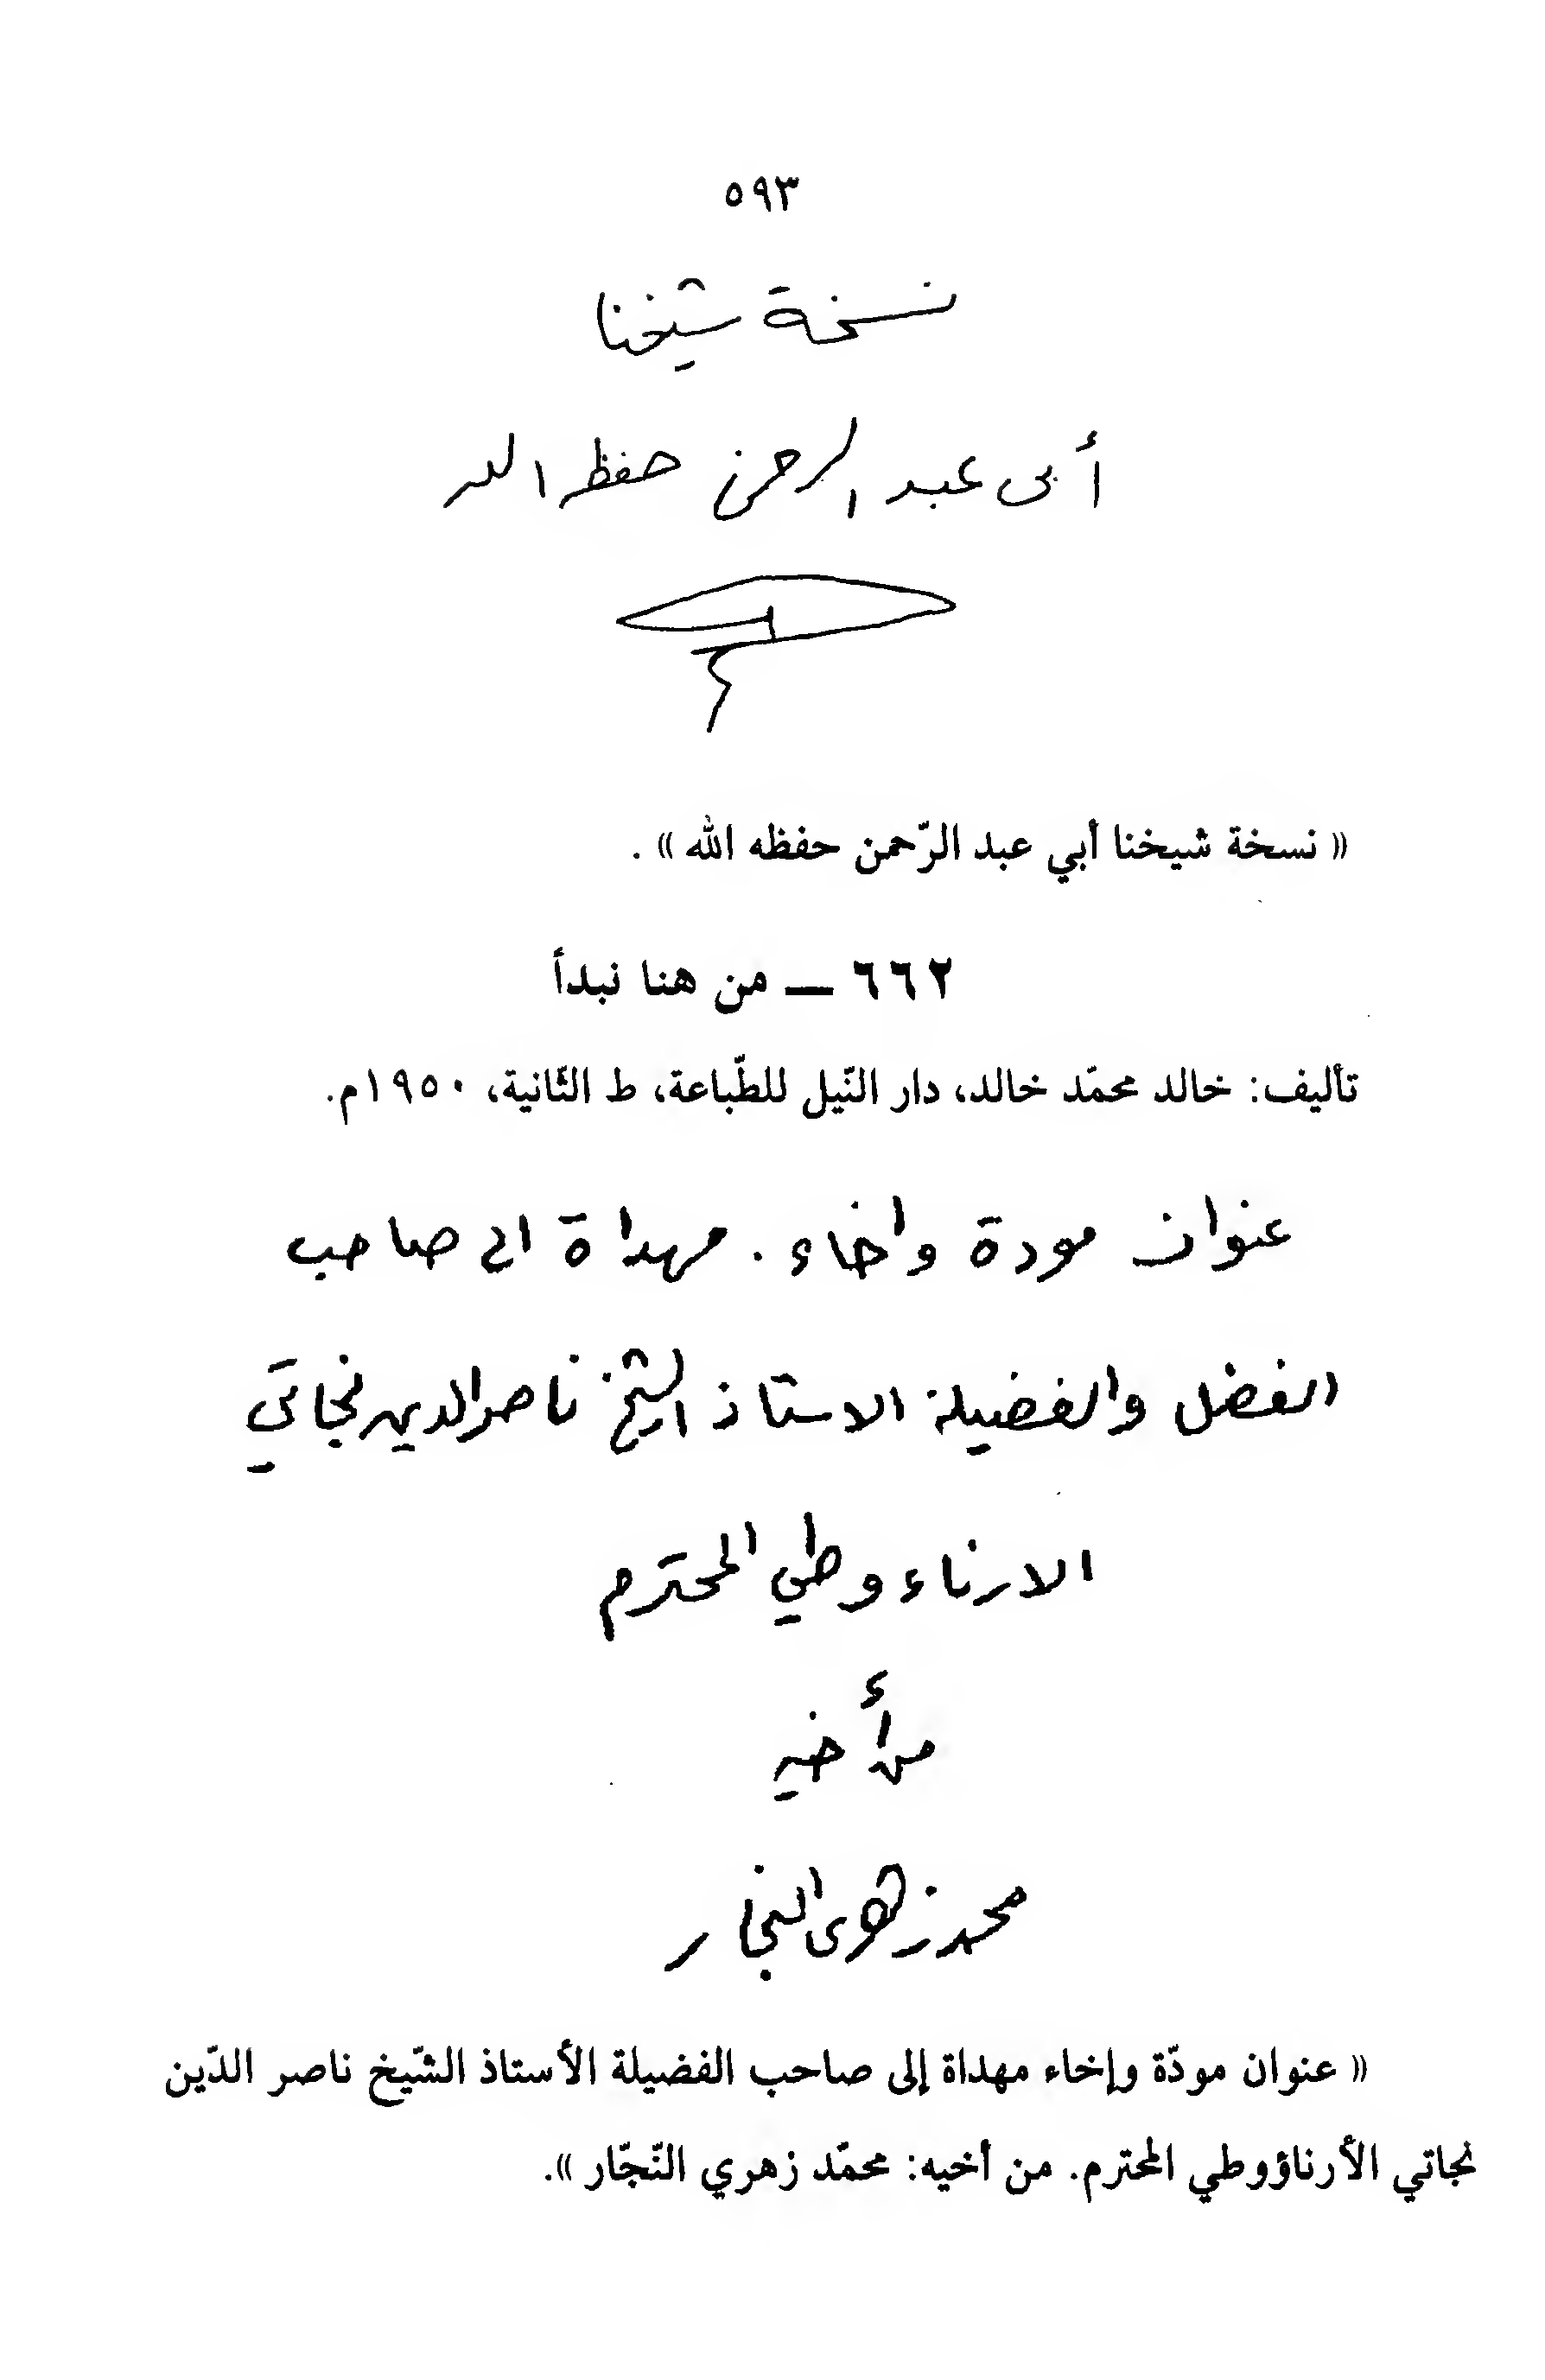 ٥٩٣
نسخة شيخنا
أبى عبد الرحمن حفظه الله
« نسخة شيخنا أبي عبد الرّحمن حفظه الله » .
٦٦٢ ـــ من هنا نبدأ
تأليف: خالد محمّد خالد، دار النّيل للطّباعة، ط الثّانية، ١٩٥٠م.
عنوان مودة واخاء . مهداة الى صاحب
الفضل والفضيلة الاستاذ الشيخ ناصر الدين نجاتي
الارناءوطي المحترم
من أخيه
محمد زهرى النجار
« عنوان مودّة وإخاء مهداة إلى صاحب الفضيلة الأستاذ الشّيخ ناصر الدّين
نجاتي الأرناؤوطي المحترم. من أخيه: محمّد زهري النّجّار ».